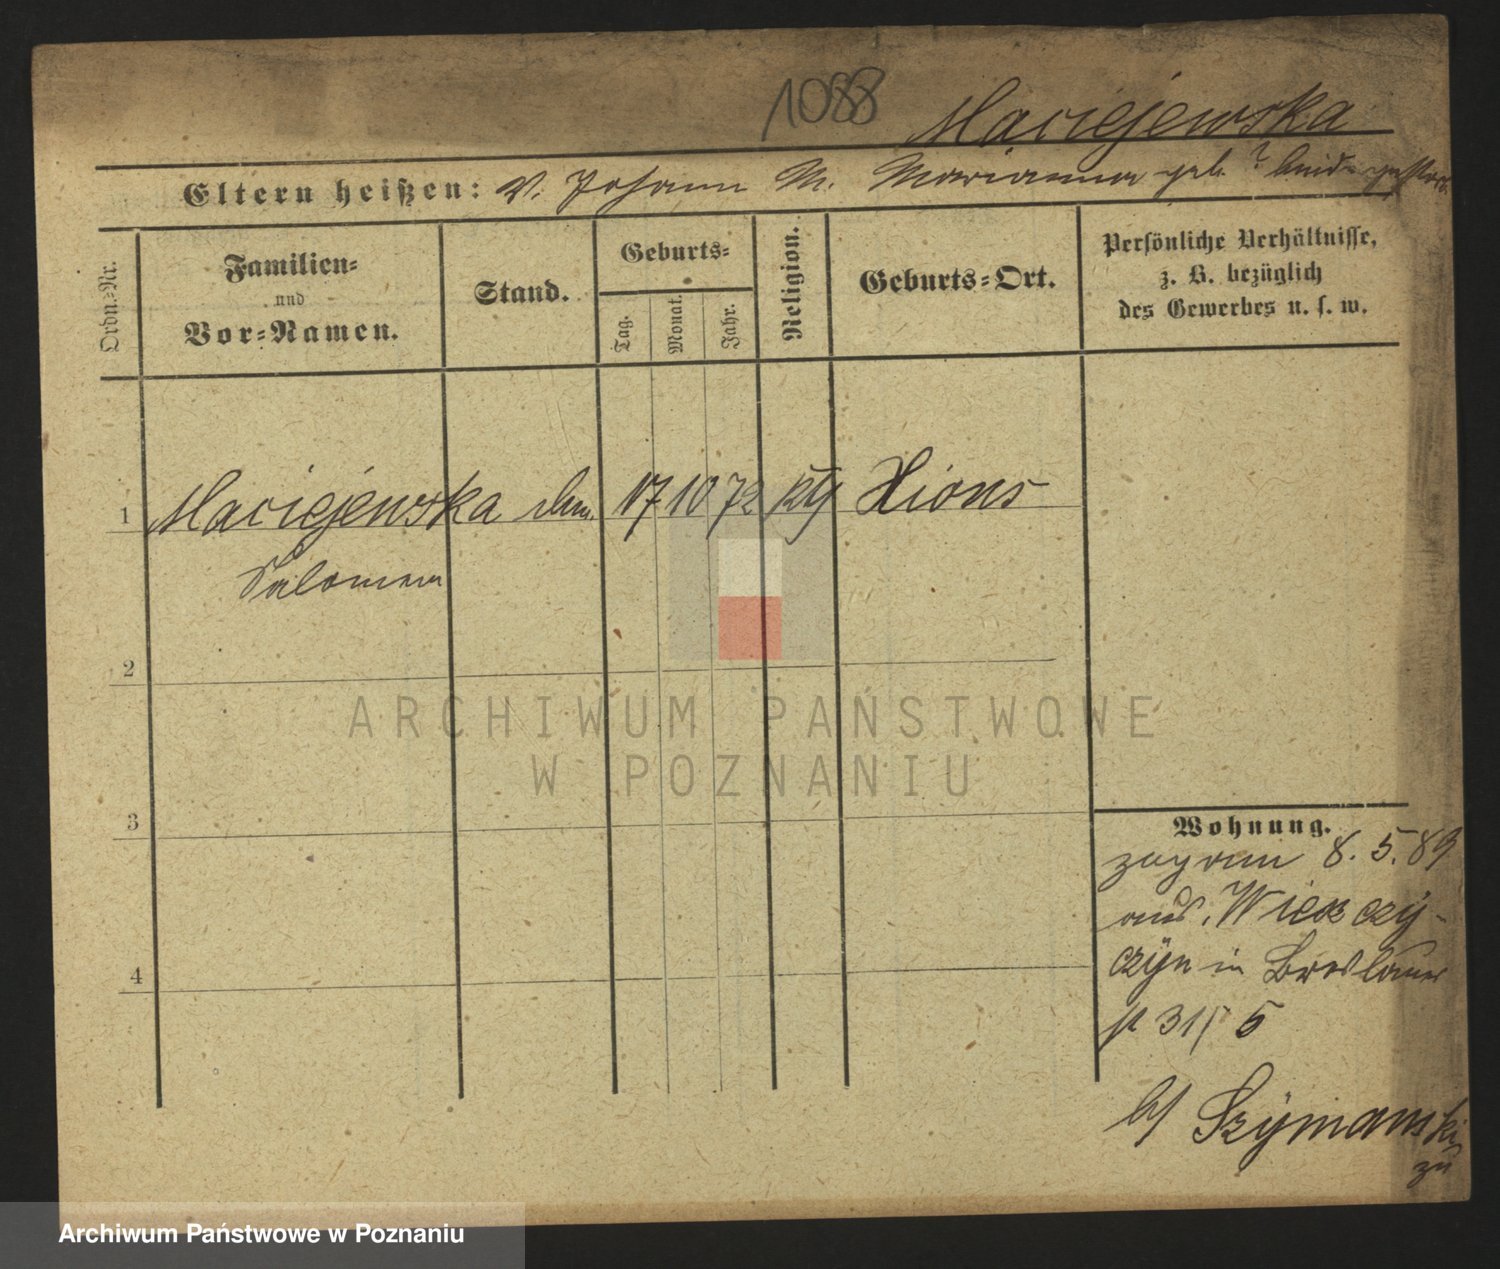 1088 Maciejewska
Eltern heißen: V. Johann M. Marianna geb. ? beide gestorb.
Ordn.-Nr.
Familien-
und
Vor-Namen.
Stand.
Geburts-
Tag.
Monat.
Jahr.
Religion.
Geburts-Ort.
Persönliche Verhältnisse,
z. B. bezüglich
des Gewerbes u. s. w.
1 Maciejewska 17 10 72 ktg Xions
Salomea
2
ARCHIWUM PAŃSTWOWE
W POZNANIU
3
Wohnung.
zugezogen 8. 5. 89
aus Wieszczy-
czyn in Breslauer
st 31/5
b/ Szymanski
zu
4
Archiwum Państwowe w Poznaniu